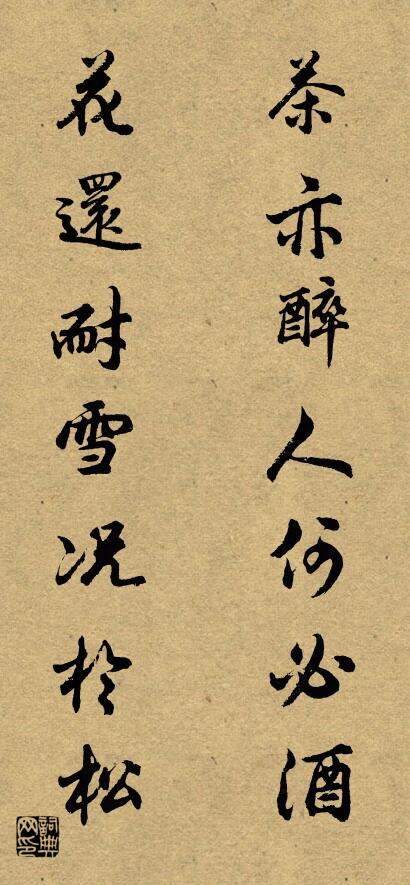 茶亦醉人何必酒
花還耐雪況於松
詞典網印